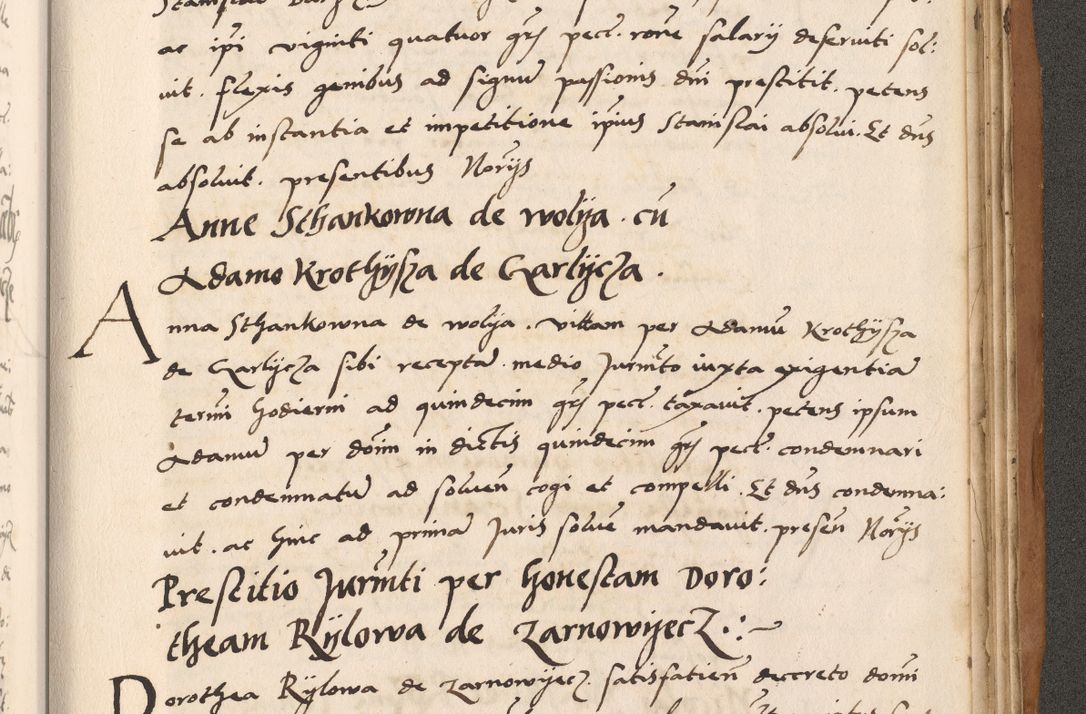 ac ipi viginti quatuor grs pecc. rone salarij deseruiti sol:
uit. flexis genibus ad signu passionis dni prestitit. petens
se ab instantia et impetitione ipius Stanislai absolui. Et dns
absoluit. presentibus Norijs
Anne Schankowna de wolija. cu
Adamo Krothijsza de Czarlijcza.
Anna Sthankowna de wolija. vittam per Adamu Krothijsza
de Czarlijcza sibi recepta medio Jurmto iuxta exigentia
termi hodierni ad quindecim grs pecc. taxauit. petens ipsum
Adamu per dnim in dictis quindecim grs pecc. condemnari
et condemnatu ad soluen cogi et compelli. Et dns condemna:
uit. ac hinc ad prima Juris solue mandauit. presen Norijs
Prestitio Jurmti per honestam Doro:
theam Rijlowa de Zarnowijecz.
Dorothea Rijlowa de Zarnowijecz. satisfatien decreto domi